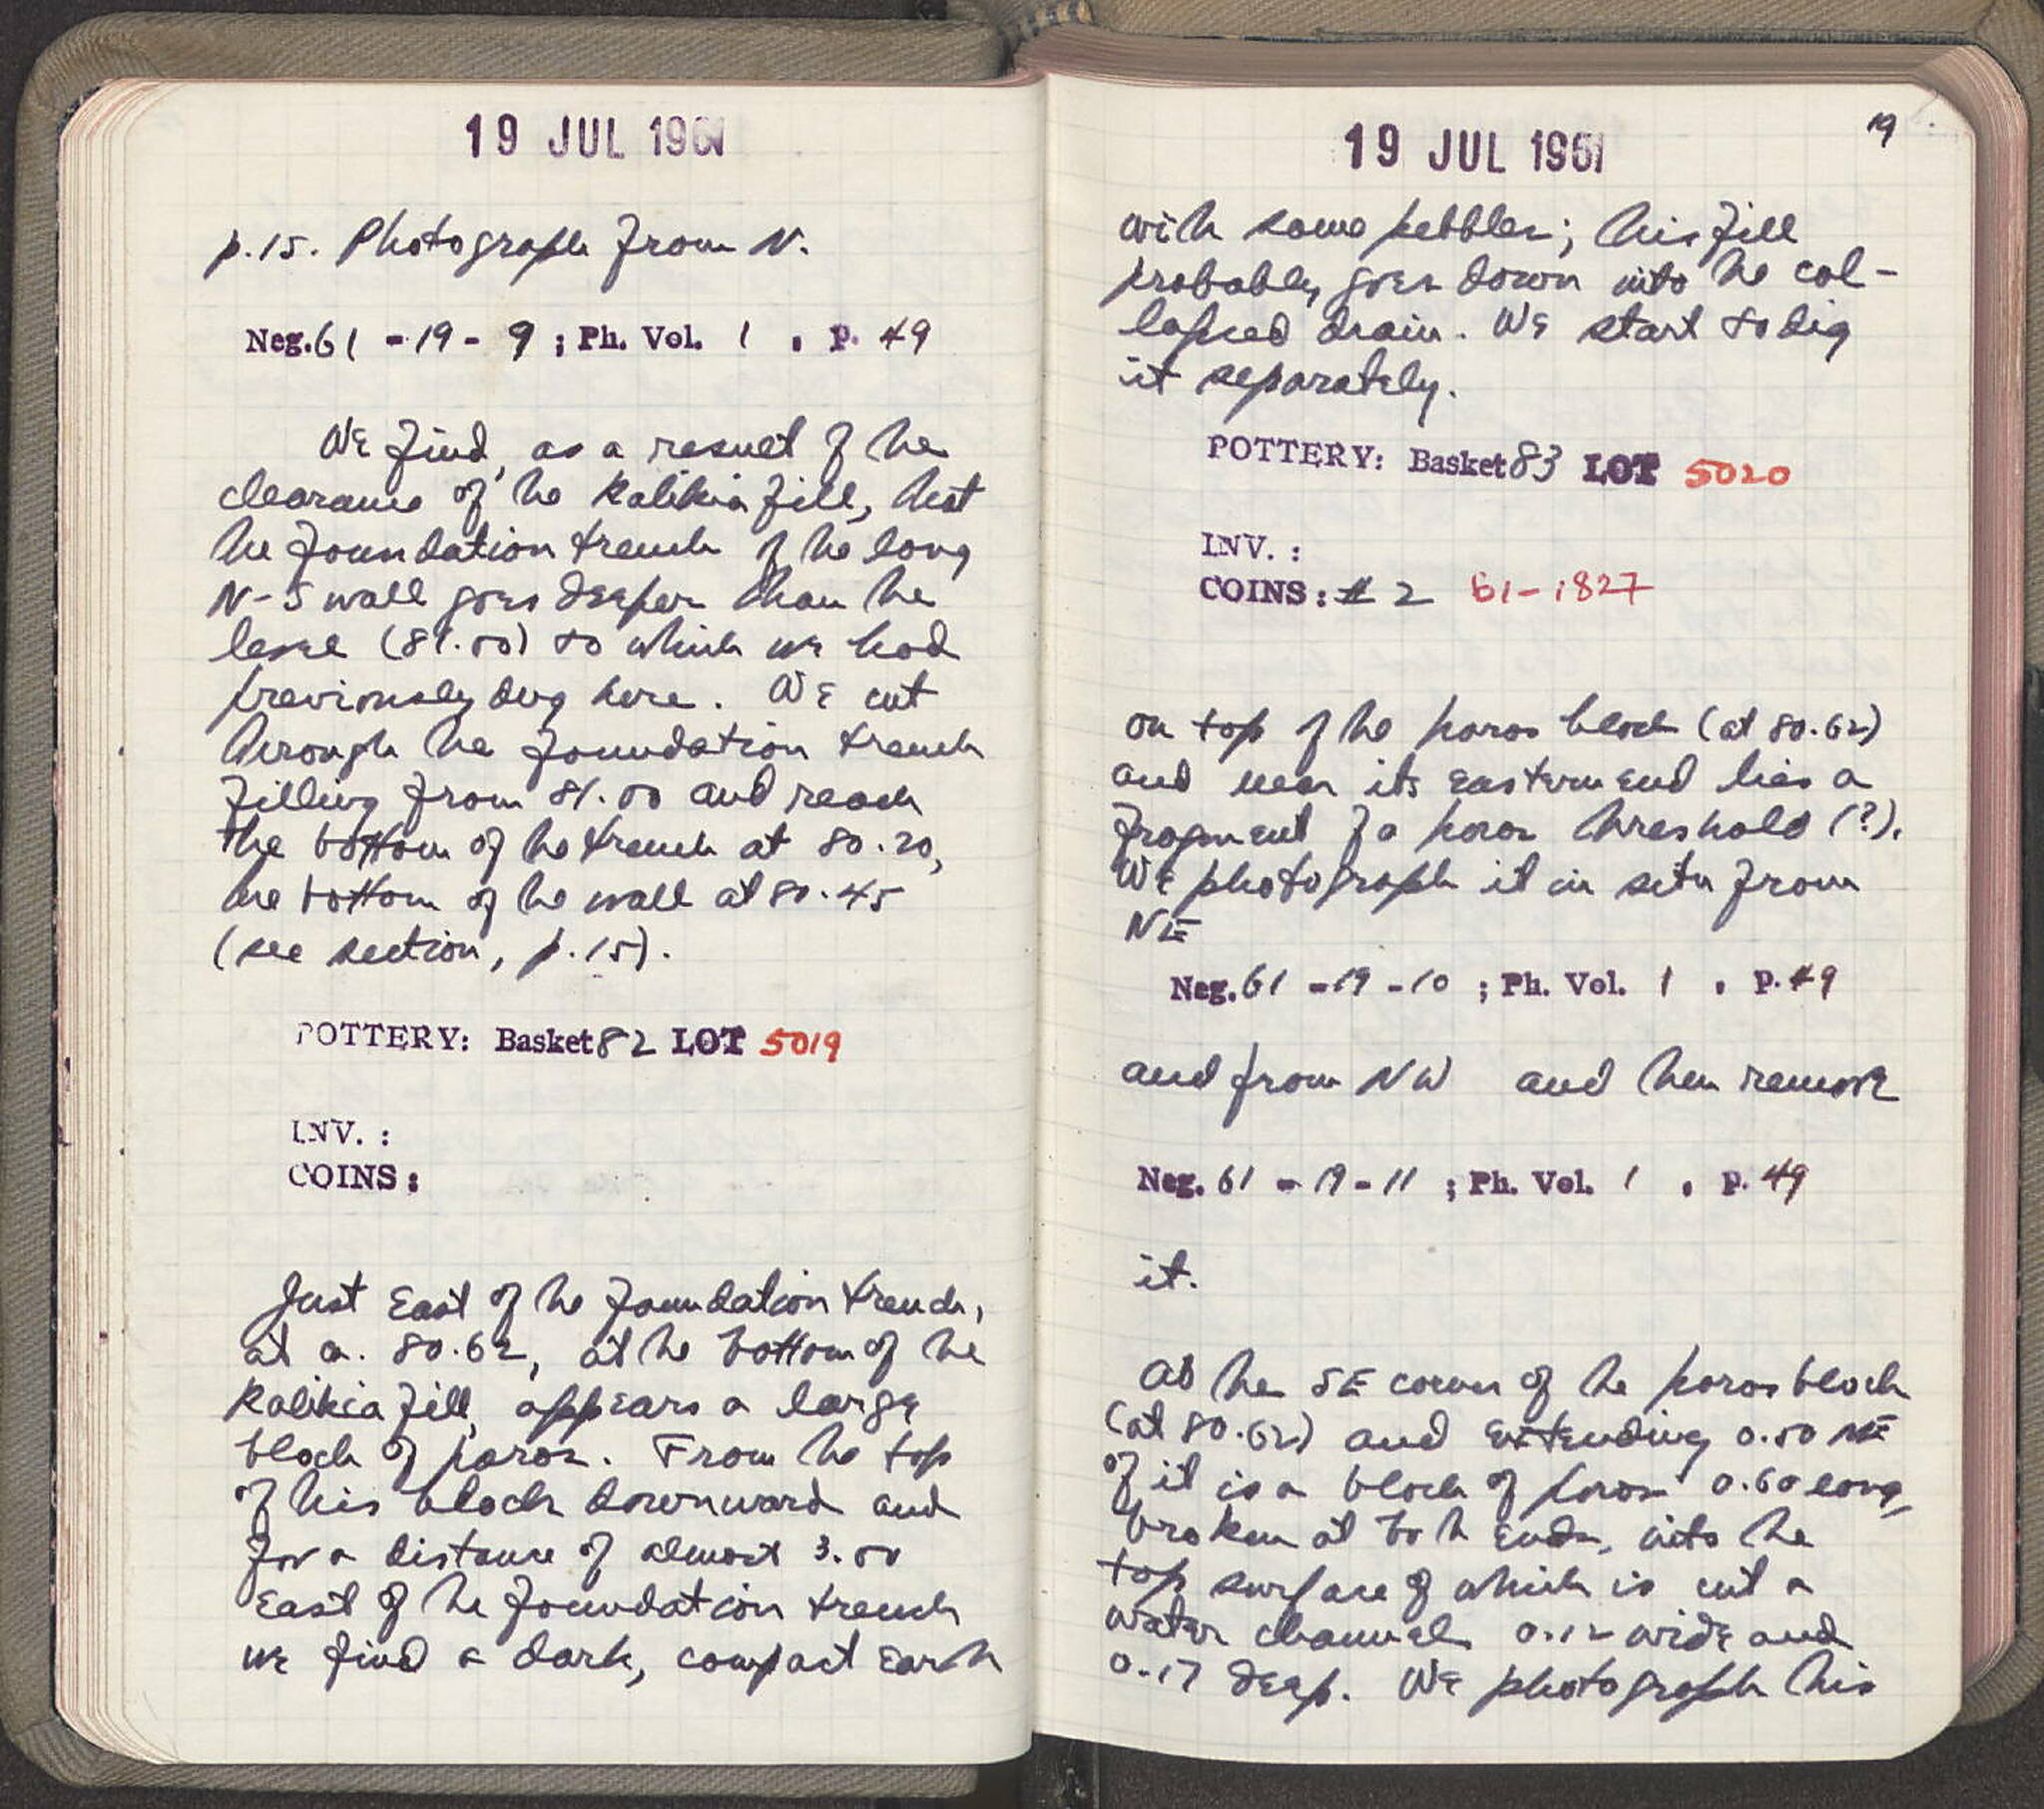 19 JUL 1961
p.15. Photograph from N.
Neg. 61 - 19 - 9 ; Ph. Vol. 1 , p. 49
We find, as a result of the
clearance of the Kalikia fill, that
the foundation trench of the long
N-S wall goes deeper than the
level (81.00) to which we had
previously dug here. We cut
through the foundation trench
filling from 81.00 and reach
the bottom of the trench at 80.20,
the bottom of the wall at 80.45
(see section, p.15).
POTTERY: Basket 82 LOT 5019
INV. :
COINS :
Just East of the foundation trench,
at ca. 80.62, at the bottom of the
Kalikia fill, appears a large
block of poros. From the top
of this block downward and
for a distance of almost 3.00
East of the foundation trench
we find a dark, compact earth
19
19 JUL 1961
with some pebbles; this fill
probably goes down into the col-
lapsed drain. We start to dig
it separately.
POTTERY: Basket 83 LOT 5020
INV. :
COINS : # 2 61-1827
On top of the poros block (at 80.62)
and near its eastern end lies a
fragment of a poros threshold (?).
We photograph it in situ from
NE
Neg. 61 - 19 - 10 ; Ph. Vol. 1 , p. 49
and from NW and then remove
Neg. 61 - 19 - 11 ; Ph. Vol. 1 , p. 49
it.
At the SE corner of the poros block
(at 80.62) and extending 0.50 NE
of it is a block of poros 0.60 long,
broken at both ends, into the
top surface of which is cut a
water channel 0.12 wide and
0.17 deep. We photograph this